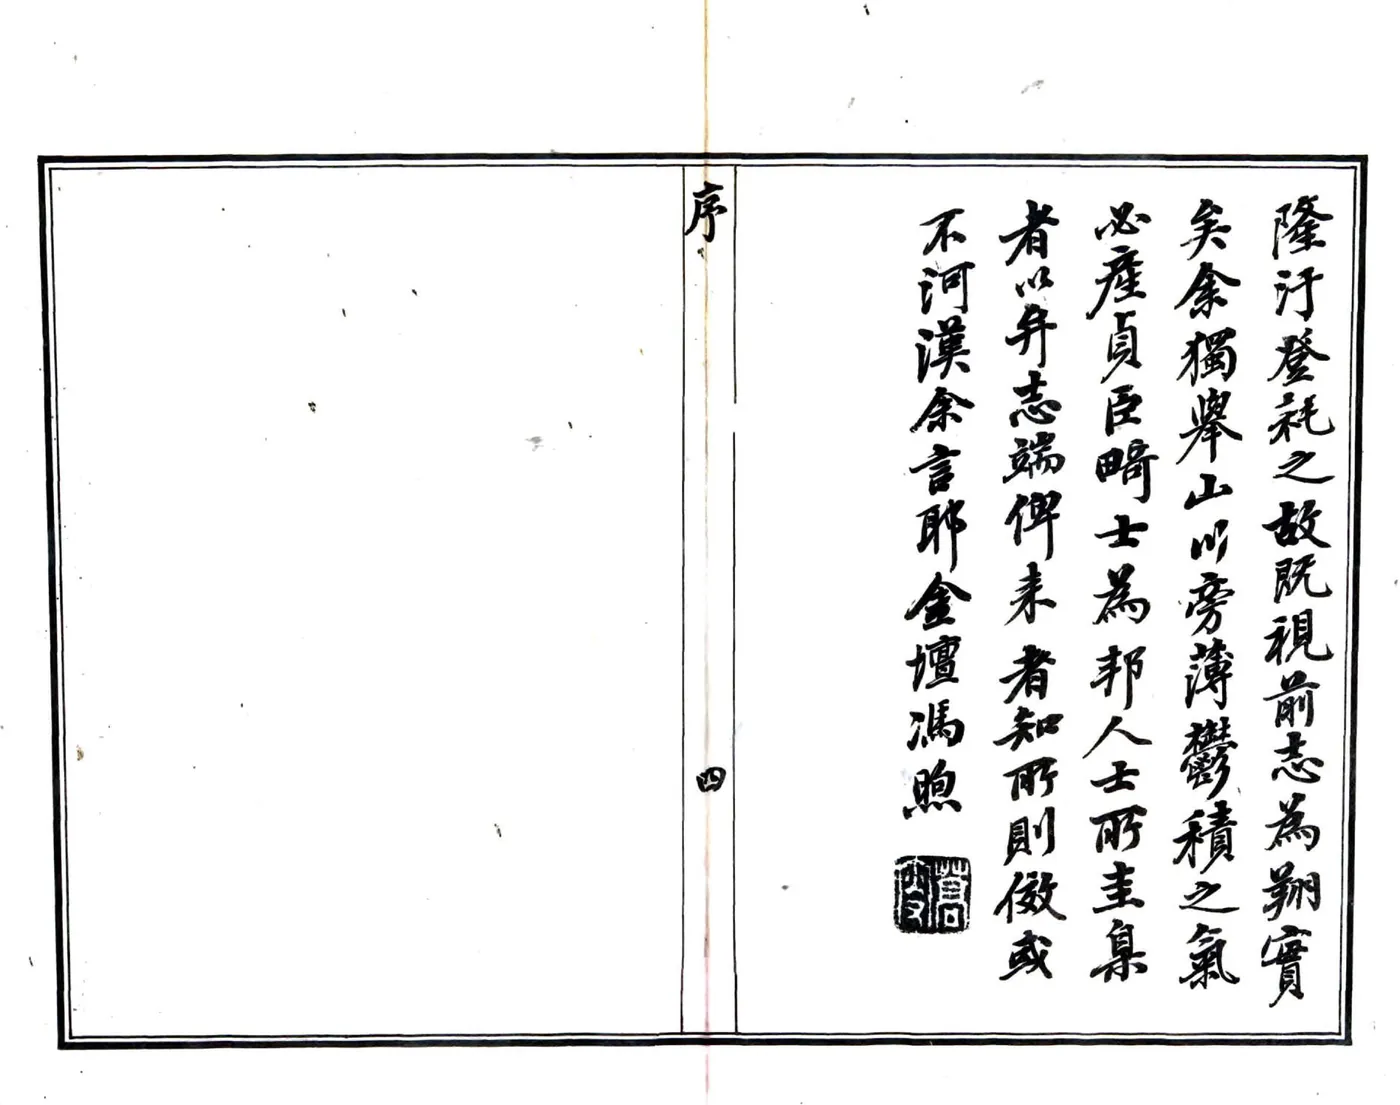 隆汙登耗之故既視前志為翔實
矣余獨舉山川旁薄鬱積之氣
必產貞臣畸士為邦人士所圭臬
者以弁志端俾来者知所則傚或
不河漢余言耶金壇馮煦
序
四